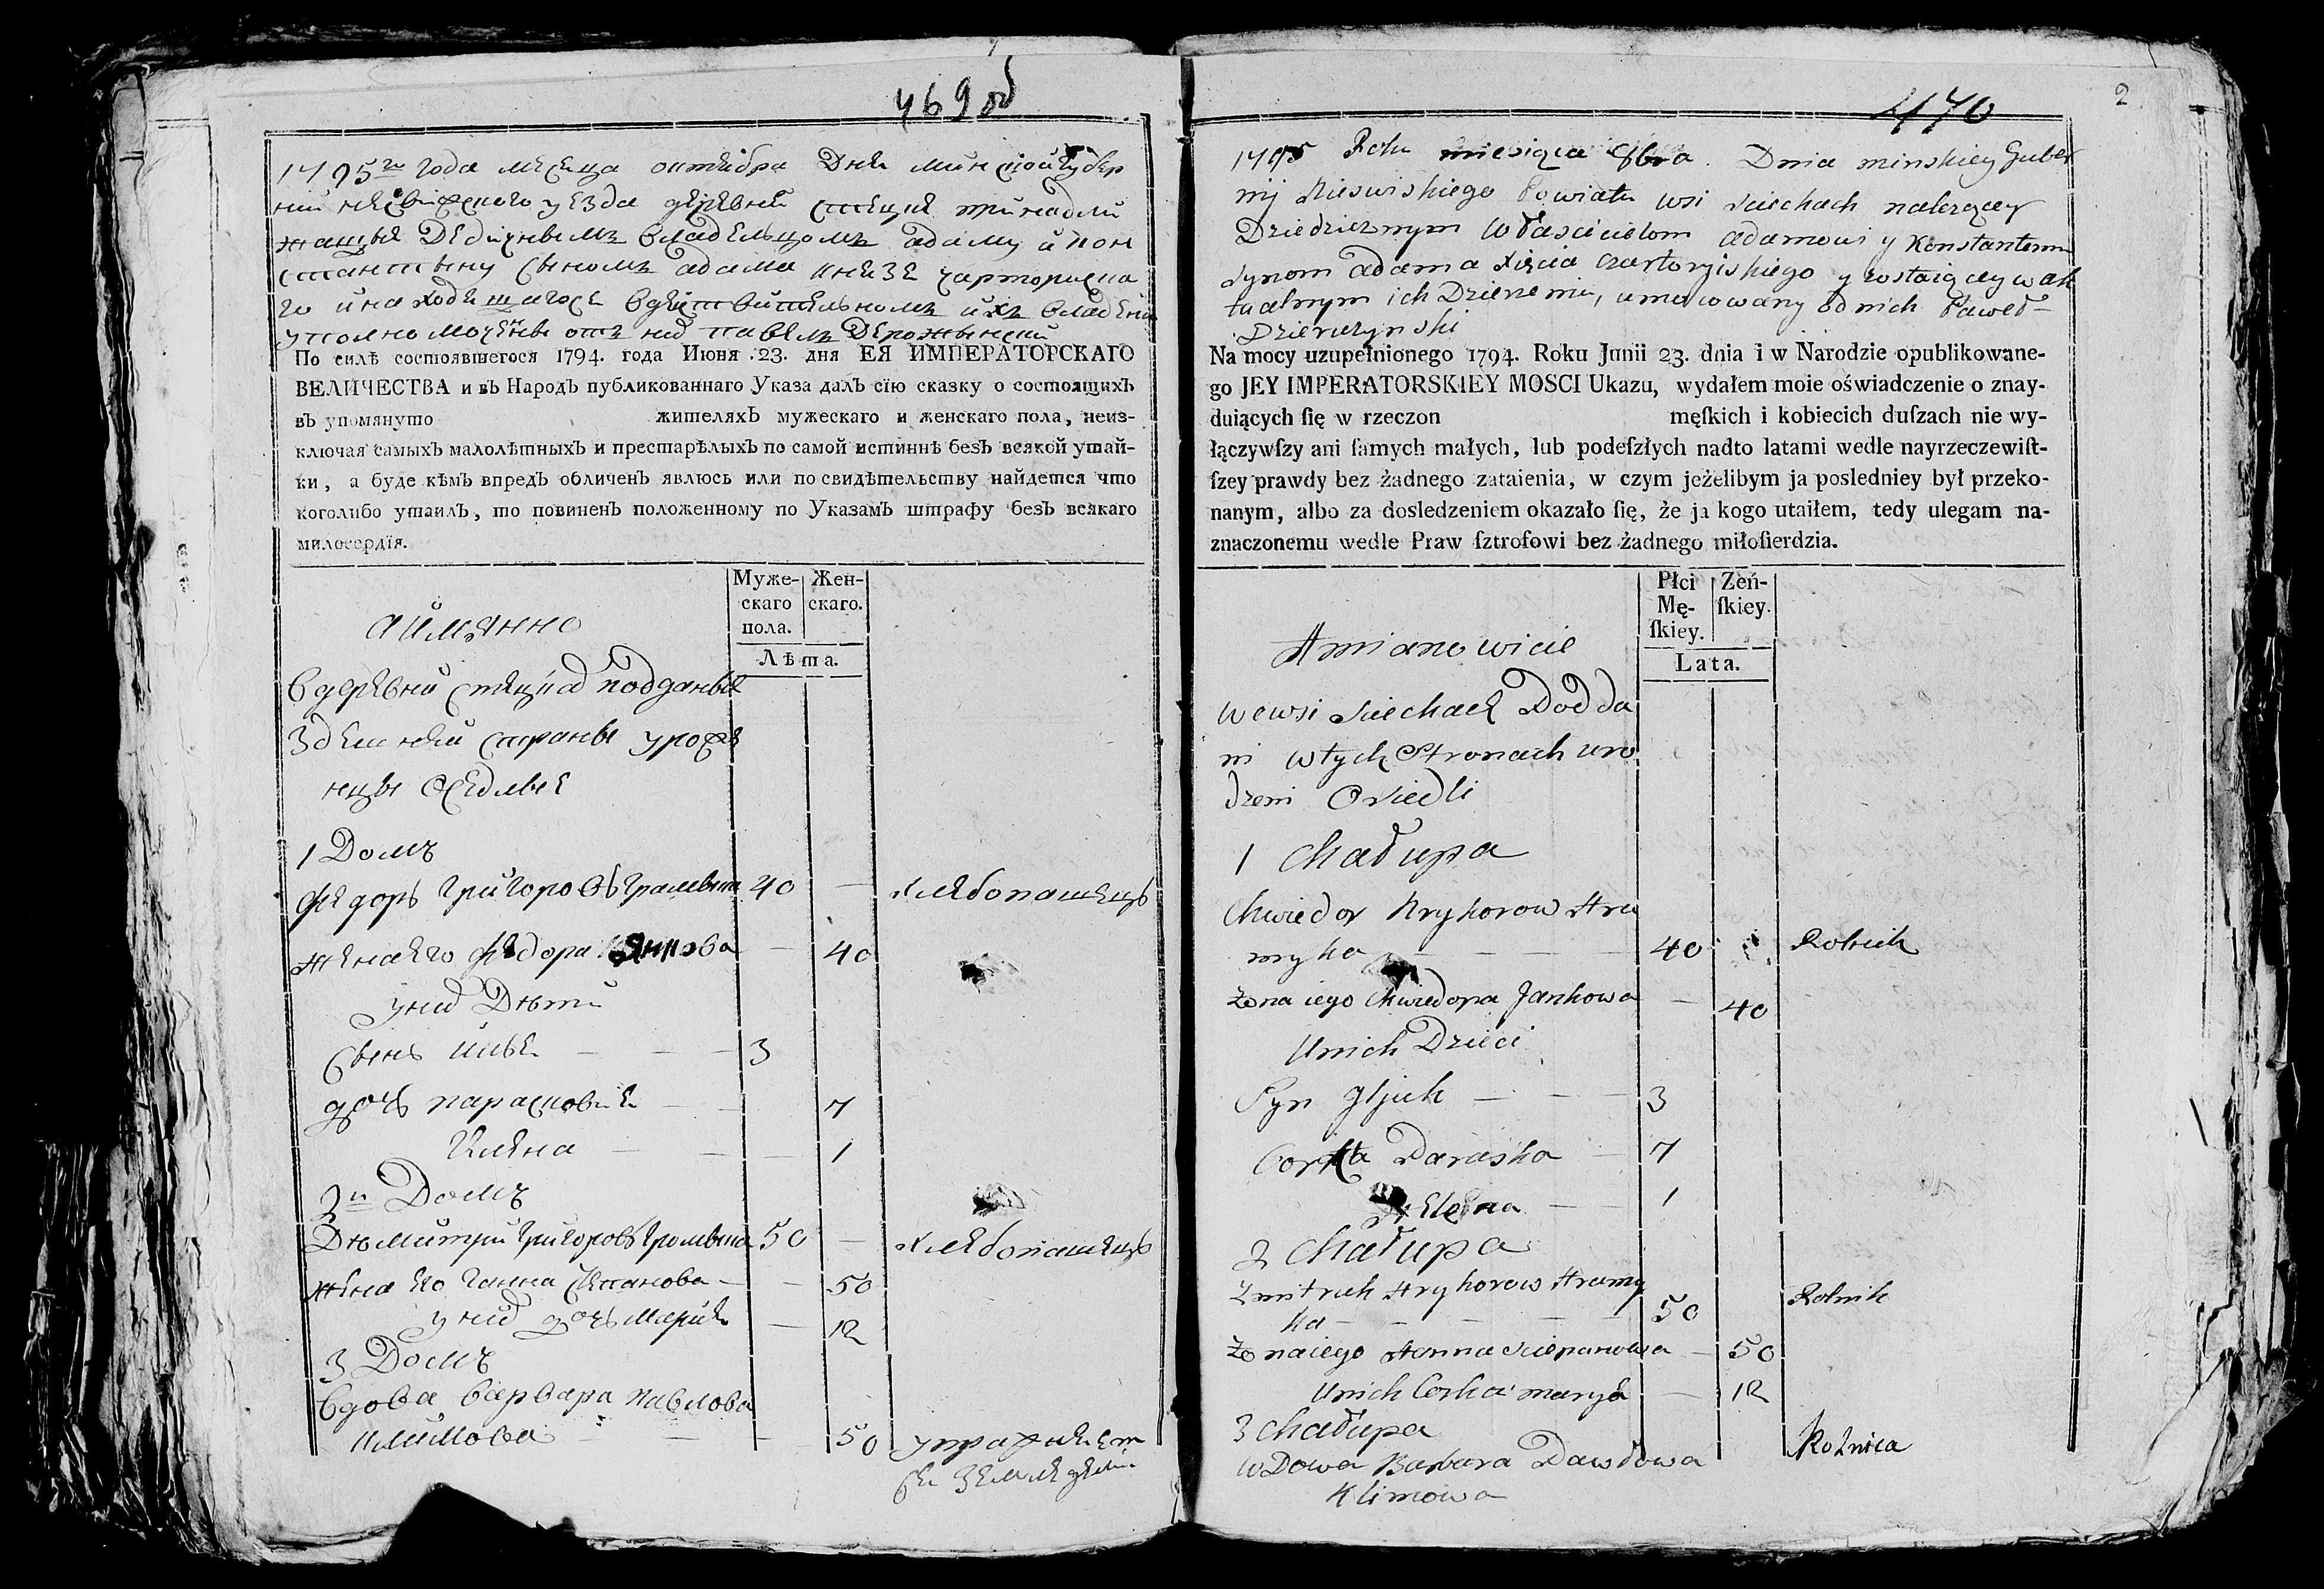 469 об
1795го года месеца октебра Дня минской губер
нии несвижского уезда деревни стецке принадли
жащые Дедичнымъ владельцомъ адаму и кон
стантыну сыномъ адама кнезе чарторыска
го и находещагосе вдействительномъ ихъ владении
уполномоченны отъ них павелъ Дерожынский
По силѣ состоявшегося 1794. года Июня .23. дня ЕЯ ИМПЕРАТОРСКАГО
ВЕЛИЧЕСТВА и въ Народъ публикованнаго Указа далъ сїю сказку о состоящихъ
въ упомянуто жителяхъ мужескаго и женскаго пола, неиз-
ключая самыхъ малолѣтныхъ и престарѣлыхъ по самой истиннѣ безъ всякой утай-
ки, а буде кѣмъ впредь обличенъ явлюсь или по свидѣтельству найдется что
коголибо утаилъ, то повиненъ положенному по Указамъ штрафу безъ всякаго
милосердїя.
Муже- Жен-
скаго скаго.
пола.
Лѣта.
аймянно
в деревни стецках подданые
Здешней страны уроже
нцы оседлые
1 Домъ
Федоръ Григоровъ Грамыка 40 — хлебопашецъ
жена его Федора Янкова — 40
у них Дѣти
сынъ илья — — — 3
дочь парасковия — — 7
Елена — — — 1
2й Домъ
Дымитри Григоровъ Громыка 50 — хлебопашецъ
жена его Ганна Степанова — — 50
у них дочь Мария — 12
3 Домъ
вдова варвара павлова
климова — — — 50 упражняет
се земледели
470
2
1795 Roku miesiąca 8bra. Dnia minskiey Guber
nij Nieswiskiego Powiatu wsi Sciechach nalezącey
Dziedzicznym Włascicielom adamowi y Konstantemu
Synom adama Xięcia Czartoryiskiego y zostaiącey w ak
tualnym ich Dzierzeniu, umocowany od nich Paweł —
Dzierozynski
Na mocy uzupełnionego 1794. Roku Junii 23. dnia i w Narodzie opublikowane-
go JEY IMPERATORSKIEY MOSCI Ukazu, wydałem moie oświadczenie o znay-
duiących ſię w rzeczon męſkich i kobiecich duſzach nie wy-
łączywſzy ani ſamych małych, lub podeſzłych nadto latami wedle nayrzeczewiſt-
ſzey prawdy bez żadnego zataienia, w czym jeżelibym ja posledniey był przeko-
nanym, albo za dosledzeniem okazało ſię, że ja kogo utaiłem, tedy ulegam na-
znaczonemu wedle Praw ſztrofowi bez żadnego miłoſierdzia.
Płci Zeń-
Mę- ſkiey.
ſkiey.
Lata.
Amianowicie
we wsi Sciechach Podda
ni w tych Stronach uro
dzeni Osiedli
1 Chałupa
Chwiedor Hryhorow Hra
myka — — — — 40 Rolnik
Zona iego Chwiedora Jankowa — 40
U nich Dzieci
Syn Jljuk — — — 3
Corka Paraska — 7
Helena — — 1
2 Chałupa
Zmitruk Hryhorow Hramy
ka — — — — 50 Rolnik
Zona iego Hanna Sciepanowa — 50
U nich Corka marya — 12
3 Chałupa
WDowa Barbara Pawłowa
Klimowa
Rolnica